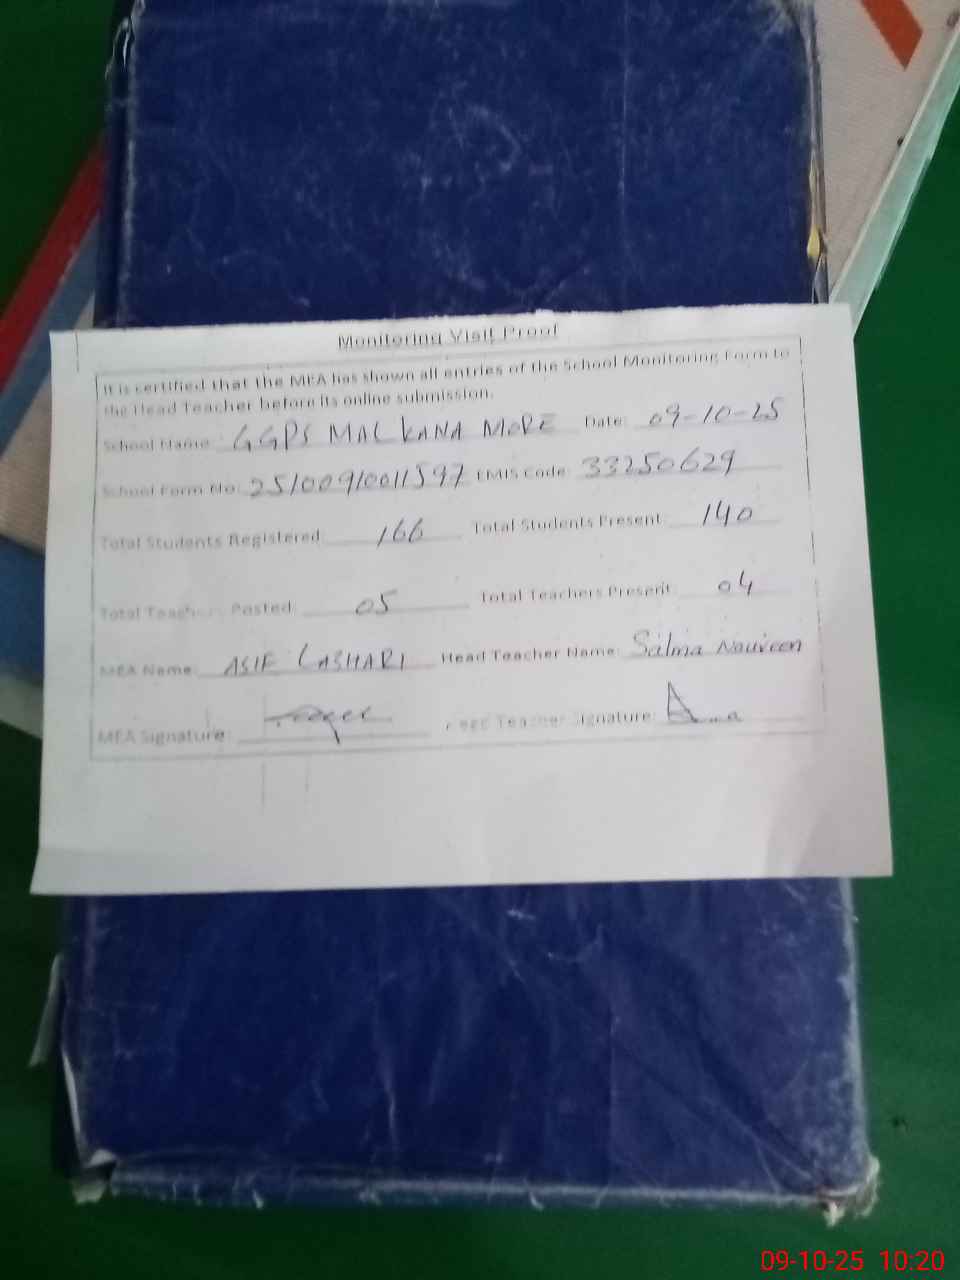 Monitoring Visit Proof
It is certified that the MEA has shown all entries of the School Monitoring Form to
the Head Teacher before its online submission.
School Name: GGPS MALKANA MORE Date: 09-10-25
School Form No: 25100910011597 EMIS Code: 33250629
Total Students Registered: 166 Total Students Present: 140
Total Teachers Posted: 05 Total Teachers Present: 04
MEA Name: ASIF LASHARI Head Teacher Name: Salma Naureen
MEA Signature: Head Teacher Signature:
09-10-25 10:20